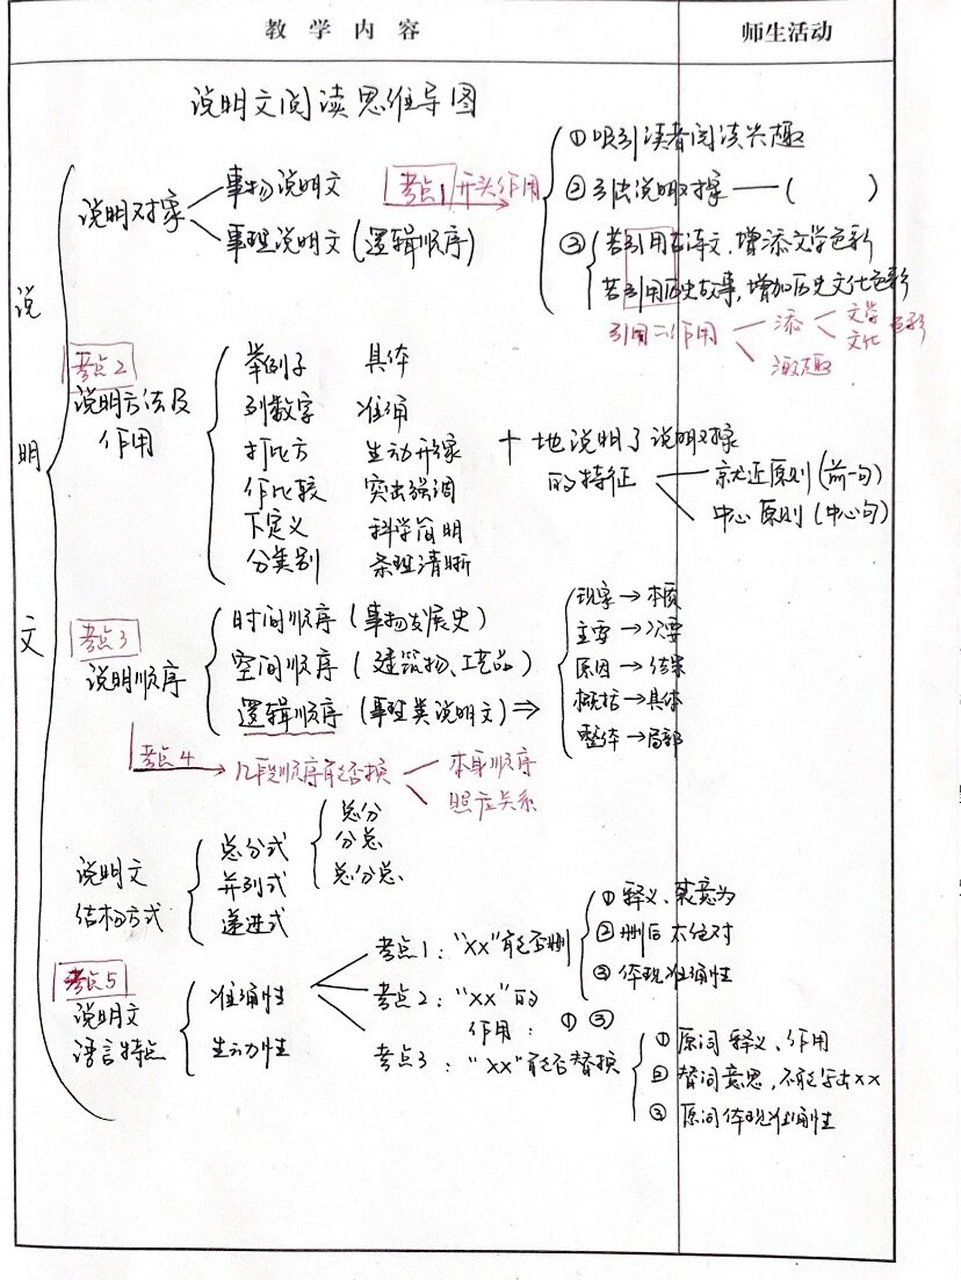 教学内容
师生活动
说明文阅读思维导图
说明文
说明对象
事物说明文
事理说明文(逻辑顺序)
考点1 开头作用
①吸引读者阅读兴趣
②引出说明对象——( )
③若引用古诗文,增添文学色彩
若引用历史故事,增加历史文化色彩
引用二作用
添
文学
文化
色彩
激趣
考点2
说明方法及
作用
举例子 具体
列数字 准确
打比方 生动形象
作比较 突出强调
下定义 科学简明
分类别 条理清晰
+地说明了说明对象
的特征
就近原则(前一句)
中心原则(中心句)
考点3
说明顺序
时间顺序(事物发展史)
空间顺序(建筑物、工艺品)
逻辑顺序(事理类说明文)⇒
现象→本质
主要→次要
原因→结果
概括→具体
整体→局部
考点4
几段顺序能否换
本身顺序
照应关系
说明文
结构方式
总分式
并列式
递进式
总分
分总
总分总
考点5
说明文
语言特点
准确性
生动性
考点1:“xx”能否删
①释义、表意为
②删后太绝对
③体现准确性
考点2:“xx”的
作用:①③
考点3:“xx”能否替换
①原词释义、作用
②替词意思,不能写出xx
③原词体现准确性